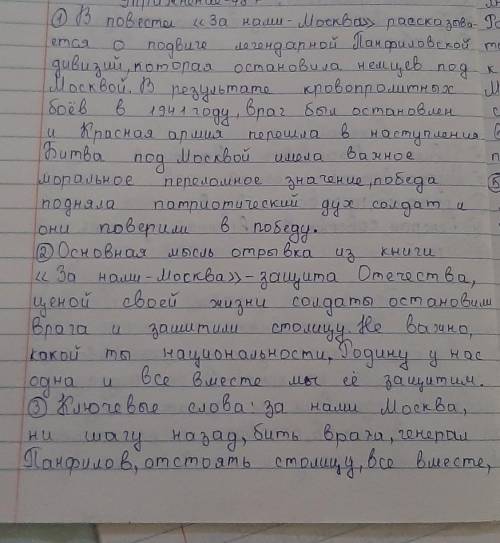 ① В повести «За нами-Москва» рассказыва-
ется о подвиге легендарной Панфиловской
дивизий, которая остановила немцев под
Москвой. В результате кровопролитных
боёв в 1941 году, враг был остановлен
и Красная армия перешла в наступления
Битва под Москвой имела важное
моральное переломное значение, победа
подняла патриотический дух солдат и
они поверили в победу.
② Основная мысль отрывка из книги
«За нами-Москва»-защита Отечества,
ценой своей жизни солдаты остановили
врага и защитили столицу. Не важно,
какой ты национальности, Родину у нас
одна и все вместе мы её защитим.
③ Ключевые слова: за нами Москва,
ни шагу назад, бить врага, генерал
Панфилов, отстоять столицу, все вместе,